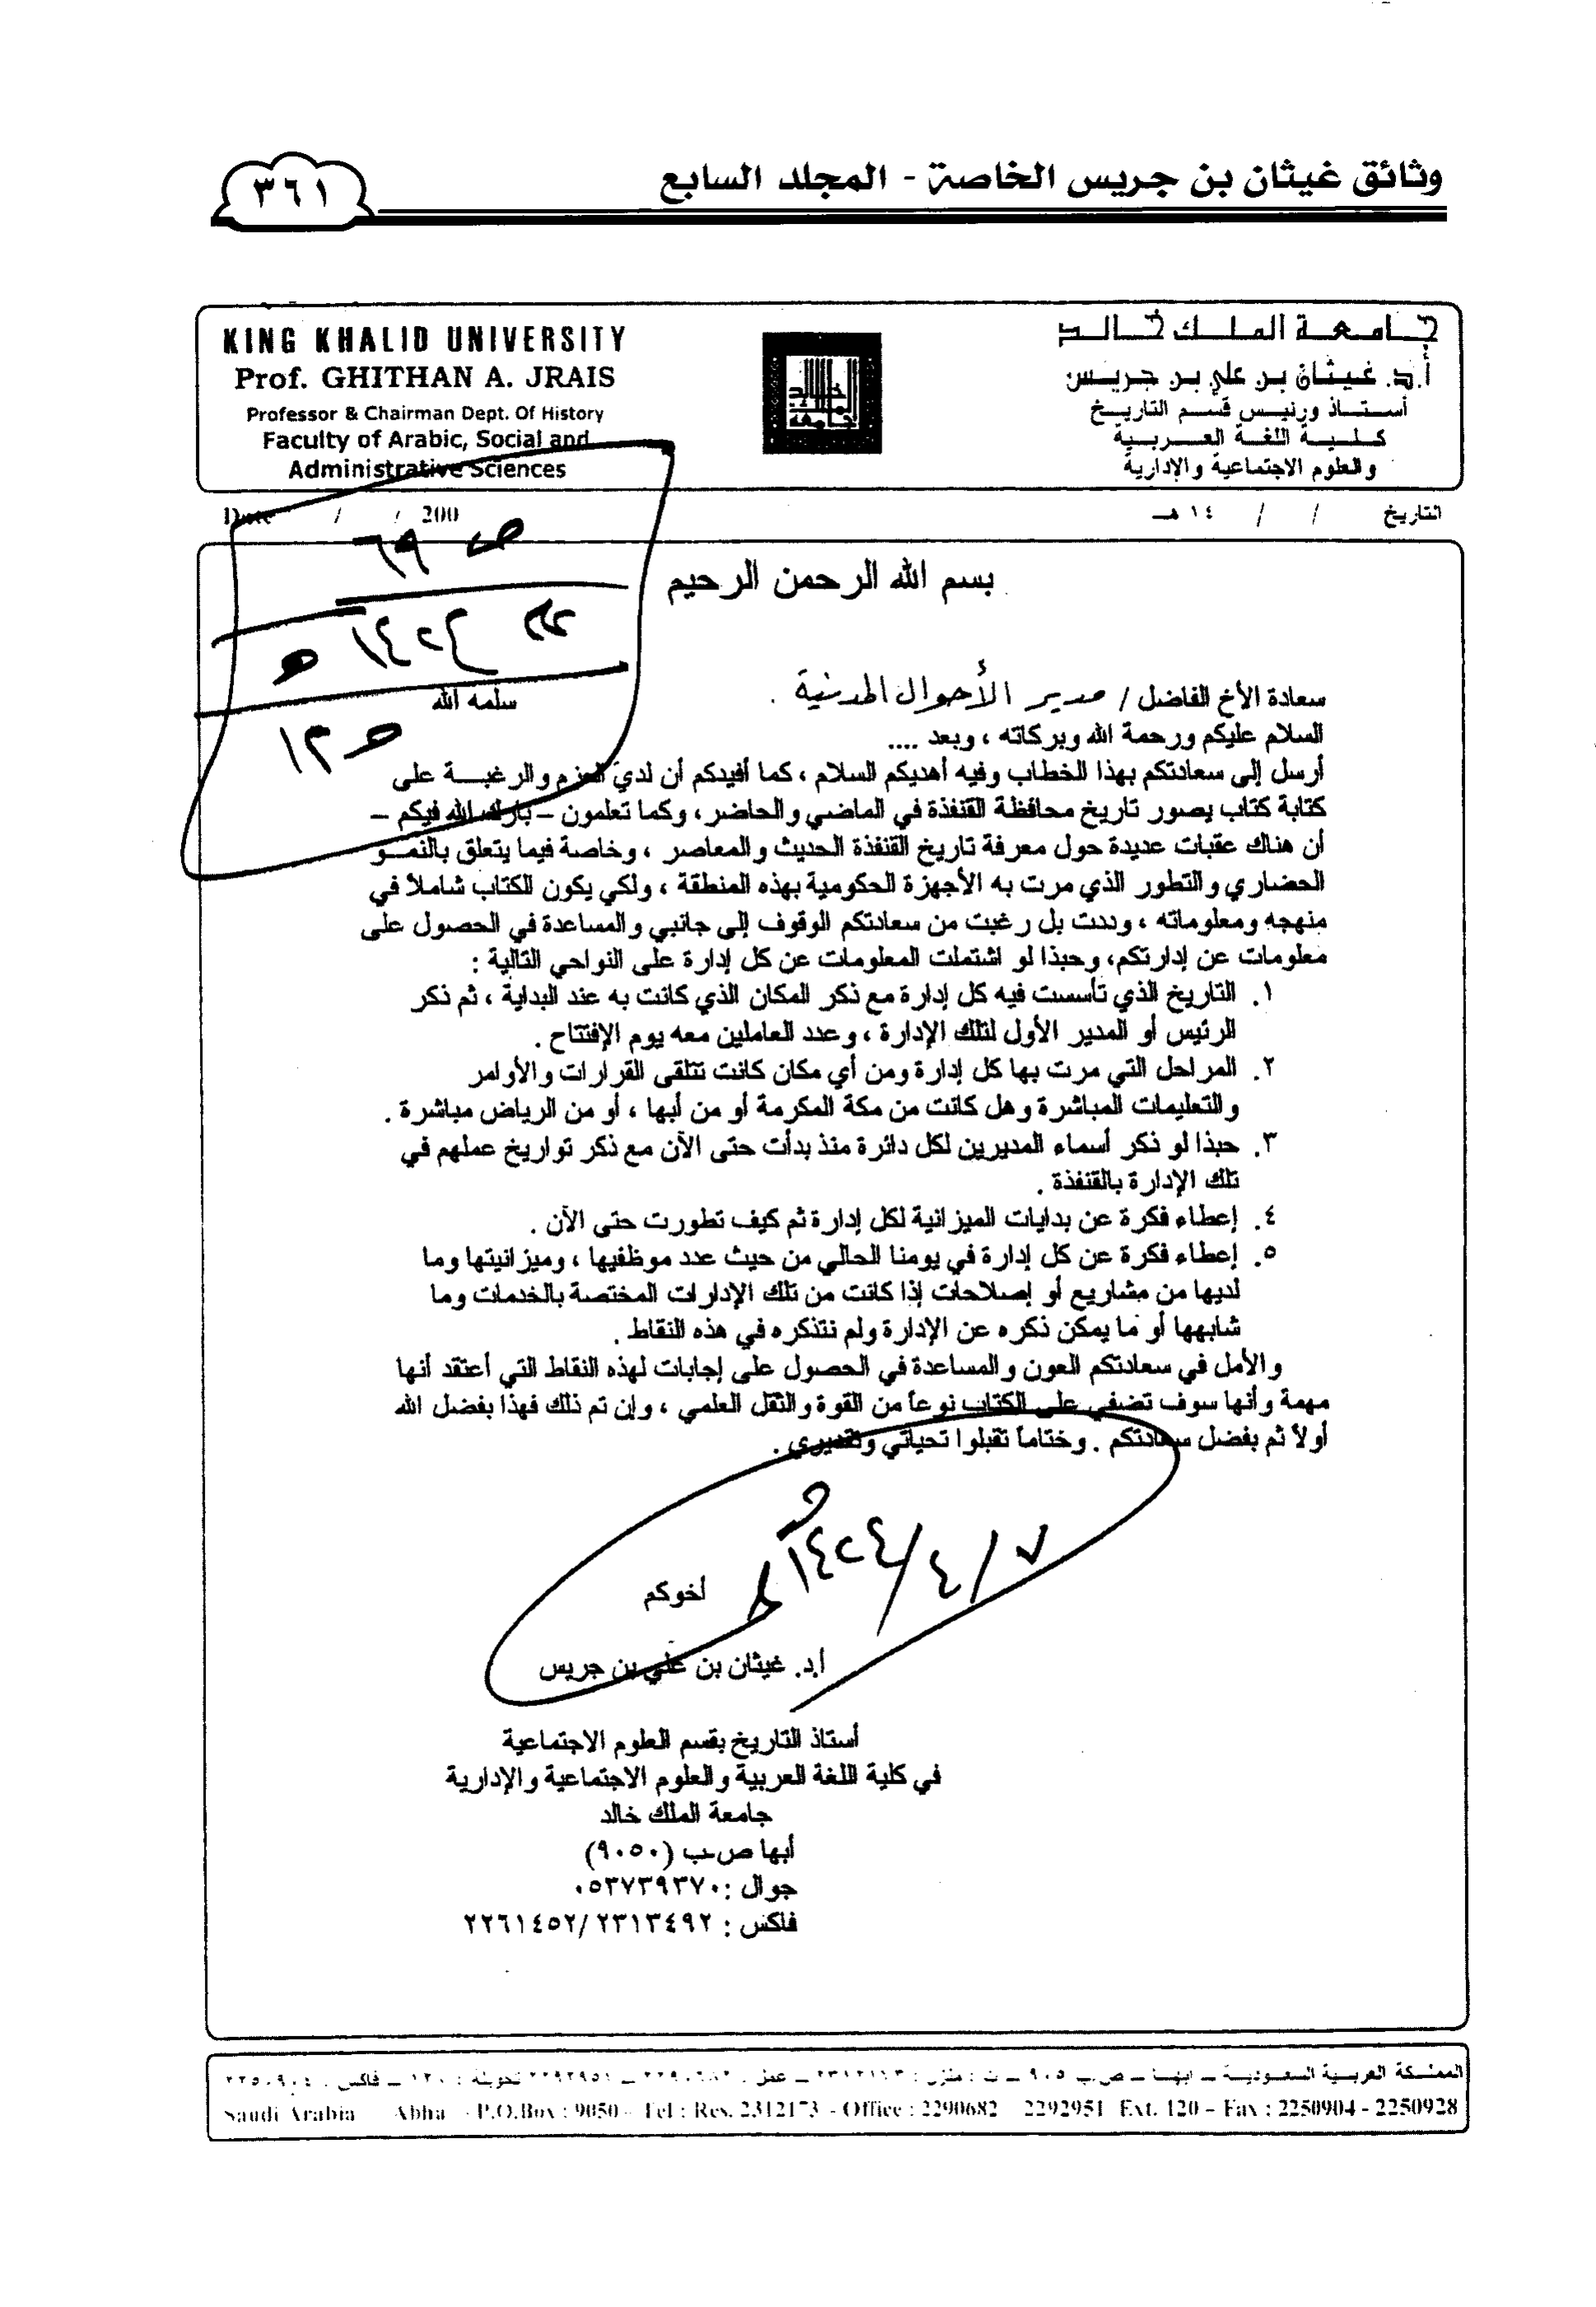 وثائق غيثان بن جريس الخاصة - المجلد السابع
٣٦١
KING KHALID UNIVERSITY
Prof. GHITHAN A. JRAIS
Professor & Chairman Dept. Of History
Faculty of Arabic, Social and
Administrative Sciences
جامعة الملك خالد
أ.د. غيثان بن علي بن جريس
أستاذ ورئيس قسم التاريخ
كلية اللغة العربية
والعلوم الاجتماعية والإدارية
Date / / 200
التاريخ / / ١٤هـ
ص ٦٩
١٤٢٤ هـ
بسم الله الرحمن الرحيم
سعادة الأخ الفاضل / مدير الأحوال المدنية . سلمه الله
السلام عليكم ورحمة الله وبركاته ، وبعد ....
أرسل إلى سعادتكم بهذا الخطاب وفيه أهديكم السلام ، كما أفيدكم أن لدي العزم والرغبة على
كتابة كتاب يصور تاريخ محافظة القنفذة في الماضي والحاضر ، وكما تعلمون – بارك الله فيكم –
أن هناك عقبات عديدة حول معرفة تاريخ القنفذة الحديث والمعاصر ، وخاصة فيما يتعلق بالنمو
الحضاري والتطور الذي مرت به الأجهزة الحكومية بهذه المنطقة ، ولكي يكون الكتاب شاملاً في
منهجه ومعلوماته ، وددت بل رغبت من سعادتكم الوقوف إلى جانبي والمساعدة في الحصول على
معلومات عن إدارتكم، وحبذا لو اشتملت المعلومات عن كل إدارة على النواحي التالية :
١. التاريخ الذي تأسست فيه كل إدارة مع ذكر المكان الذي كانت به عند البداية ، ثم ذكر
الرئيس أو المدير الأول لتلك الإدارة ، وعدد العاملين معه يوم الإفتتاح .
٢. المراحل التي مرت بها كل إدارة ومن أي مكان كانت تتلقى القرارات والأوامر
والتعليمات المباشرة وهل كانت من مكة المكرمة أو من أبها ، أو من الرياض مباشرة .
٣. حبذا لو ذكر أسماء المديرين لكل دائرة منذ بدأت حتى الآن مع ذكر تواريخ عملهم في
تلك الإدارة بالقنفذة .
٤. إعطاء فكرة عن بدايات الميزانية لكل إدارة ثم كيف تطورت حتى الآن .
٥. إعطاء فكرة عن كل إدارة في يومنا الحالي من حيث عدد موظفيها ، وميزانيتها وما
لديها من مشاريع أو إصلاحات إذا كانت من تلك الإدارات المختصة بالخدمات وما
شابهها أو ما يمكن ذكره عن الإدارة ولم نتذكره في هذه النقاط .
والأمل في سعادتكم العون والمساعدة في الحصول على إجابات لهذه النقاط التي أعتقد أنها
مهمة وأنها سوف تضفي على الكتاب نوعاً من القوة والثقل العلمي ، وإن تم ذلك فهذا بفضل الله
أولاً ثم بفضل سعادتكم . وختاماً تقبلوا تحياتي وتقديري .
٧ / ٤ / ١٤٢٤هـ
أخوكم
أ.د. غيثان بن علي بن جريس
أستاذ التاريخ بقسم العلوم الاجتماعية
في كلية اللغة العربية والعلوم الاجتماعية والإدارية
جامعة الملك خالد
أبها ص.ب (٩٠٥٠)
جوال :٠٥٣٧٣٩٣٧٠
فاكس : ٢٢٦١٤٥٢/٢٣١٣٤٩٢
المملكة العربية السعودية – ابها – ص.ب ٩٠٥ – ت : منزل : – عمل : – ٢٢٩٢٩٥١ تحويلة : ١٢٠ – فاكس :
Saudi Arabia Abha - P.O.Box : 9050 - Tel : Res. 2312173 - Office : 2290682 2292951 Ext. 120 – Fax : 2250904 - 2250928